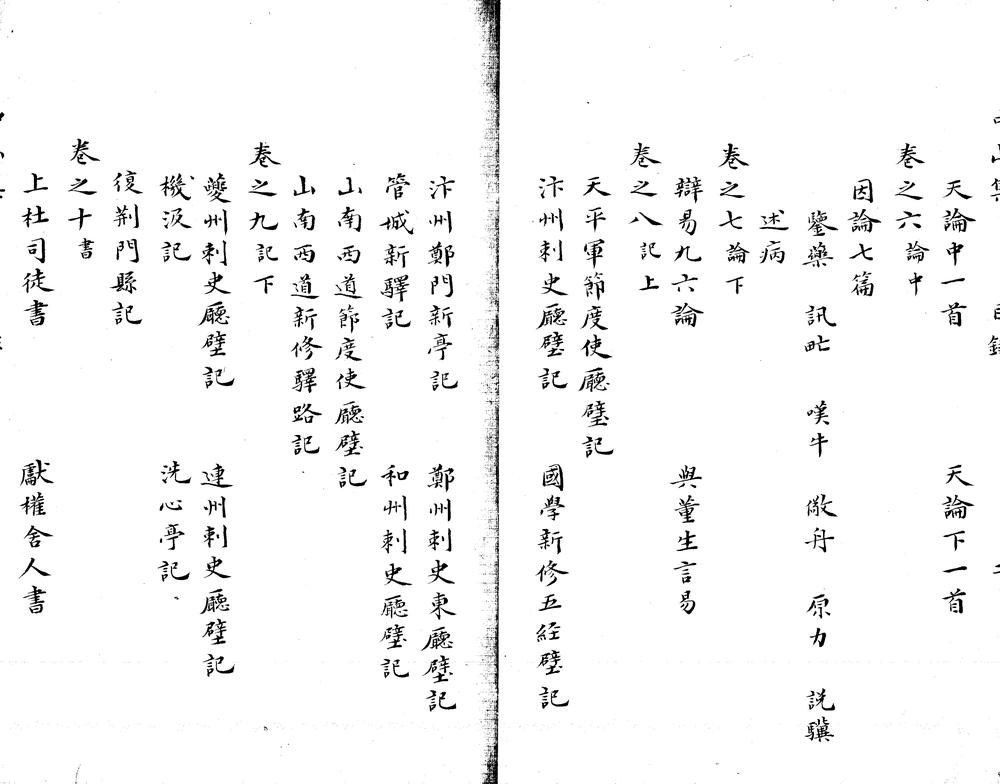 天論中一首　天論下一首
卷之六論中
因論七篇
鑒藥　訊甿　嘆牛　儆舟　原力　説驥
述病
卷之七論下
辯易九六論　與董生言易
卷之八記上
天平軍節度使廳壁記
汴州刺史廳壁記　國學新修五経壁記
汴州鄭門新亭記　鄭州刺史東廳壁記
管城新驛記　和州刺史廳壁記
山南西道節度使廳壁記
山南西道新修驛路記
卷之九記下
夔州刺史廳壁記　連州刺史廳壁記
機汲記　洗心亭記
復荆門縣記
卷之十書
上杜司徒書　獻權舍人書